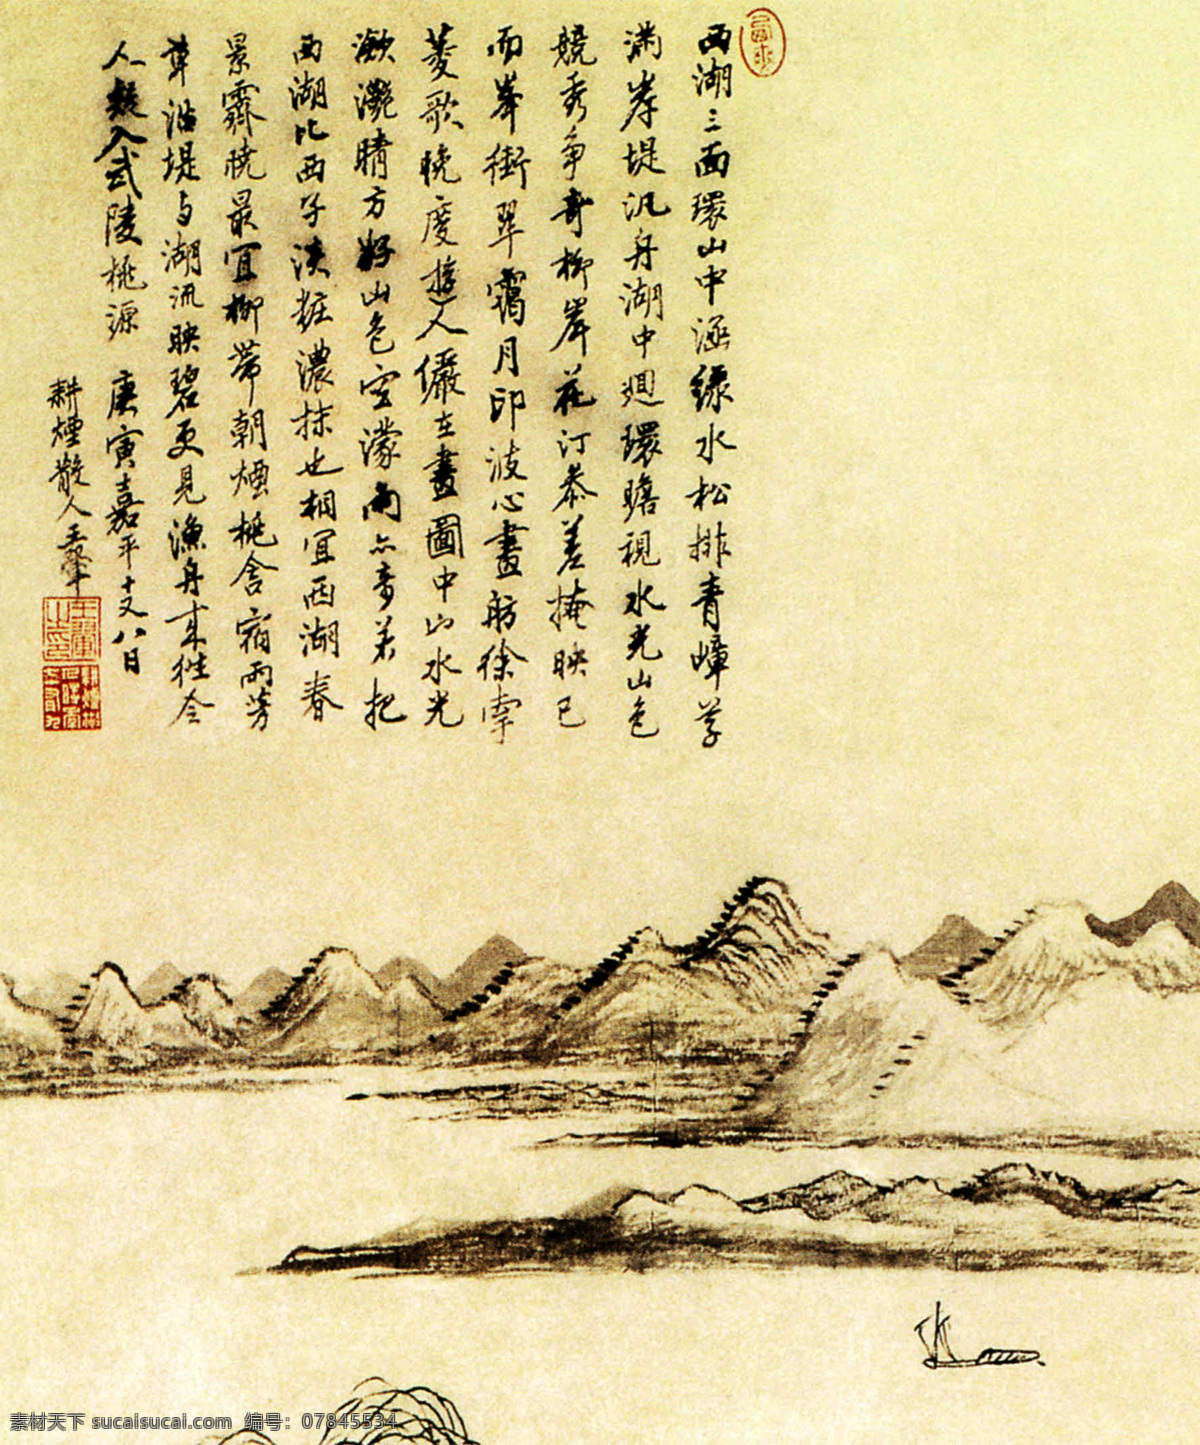 西湖三面環山中涵緑水松排青嶂草
滿岸堤汎舟湖中迴環瞻視水光山色
競秀爭奇柳岸花汀參差掩映已
而峯銜翠靄月印波心畫舫徐牽
菱歌晚度遊人儼在畫圖中山水光
瀲灔晴方好山色空濛雨亦奇若把
西湖比西子淡粧濃抹也相宜西湖春
景霽曉最宜柳帶朝煙桃含宿雨芳
草沿堤与湖流映碧更見漁舟来往令
人疑入武陵桃源 庚寅嘉平十又八日
耕煙散人王翬
王翬之印
素材天下 sucaisucai.com 编号：07845534